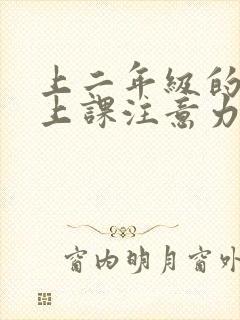 上二年級的
上課注意力
窗内明月窗外